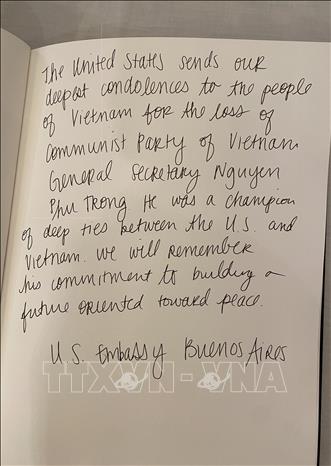 The United States sends our
deepest condolences to the people
of Vietnam for the loss of
Communist Party of Vietnam
General Secretary Nguyen
Phu Trong. He was a champion
of deep ties between the U.S. and
Vietnam. We will remember
his commitment to building a
future oriented toward peace.
U.S. Embassy Buenos Aires
TTXVN-VNA